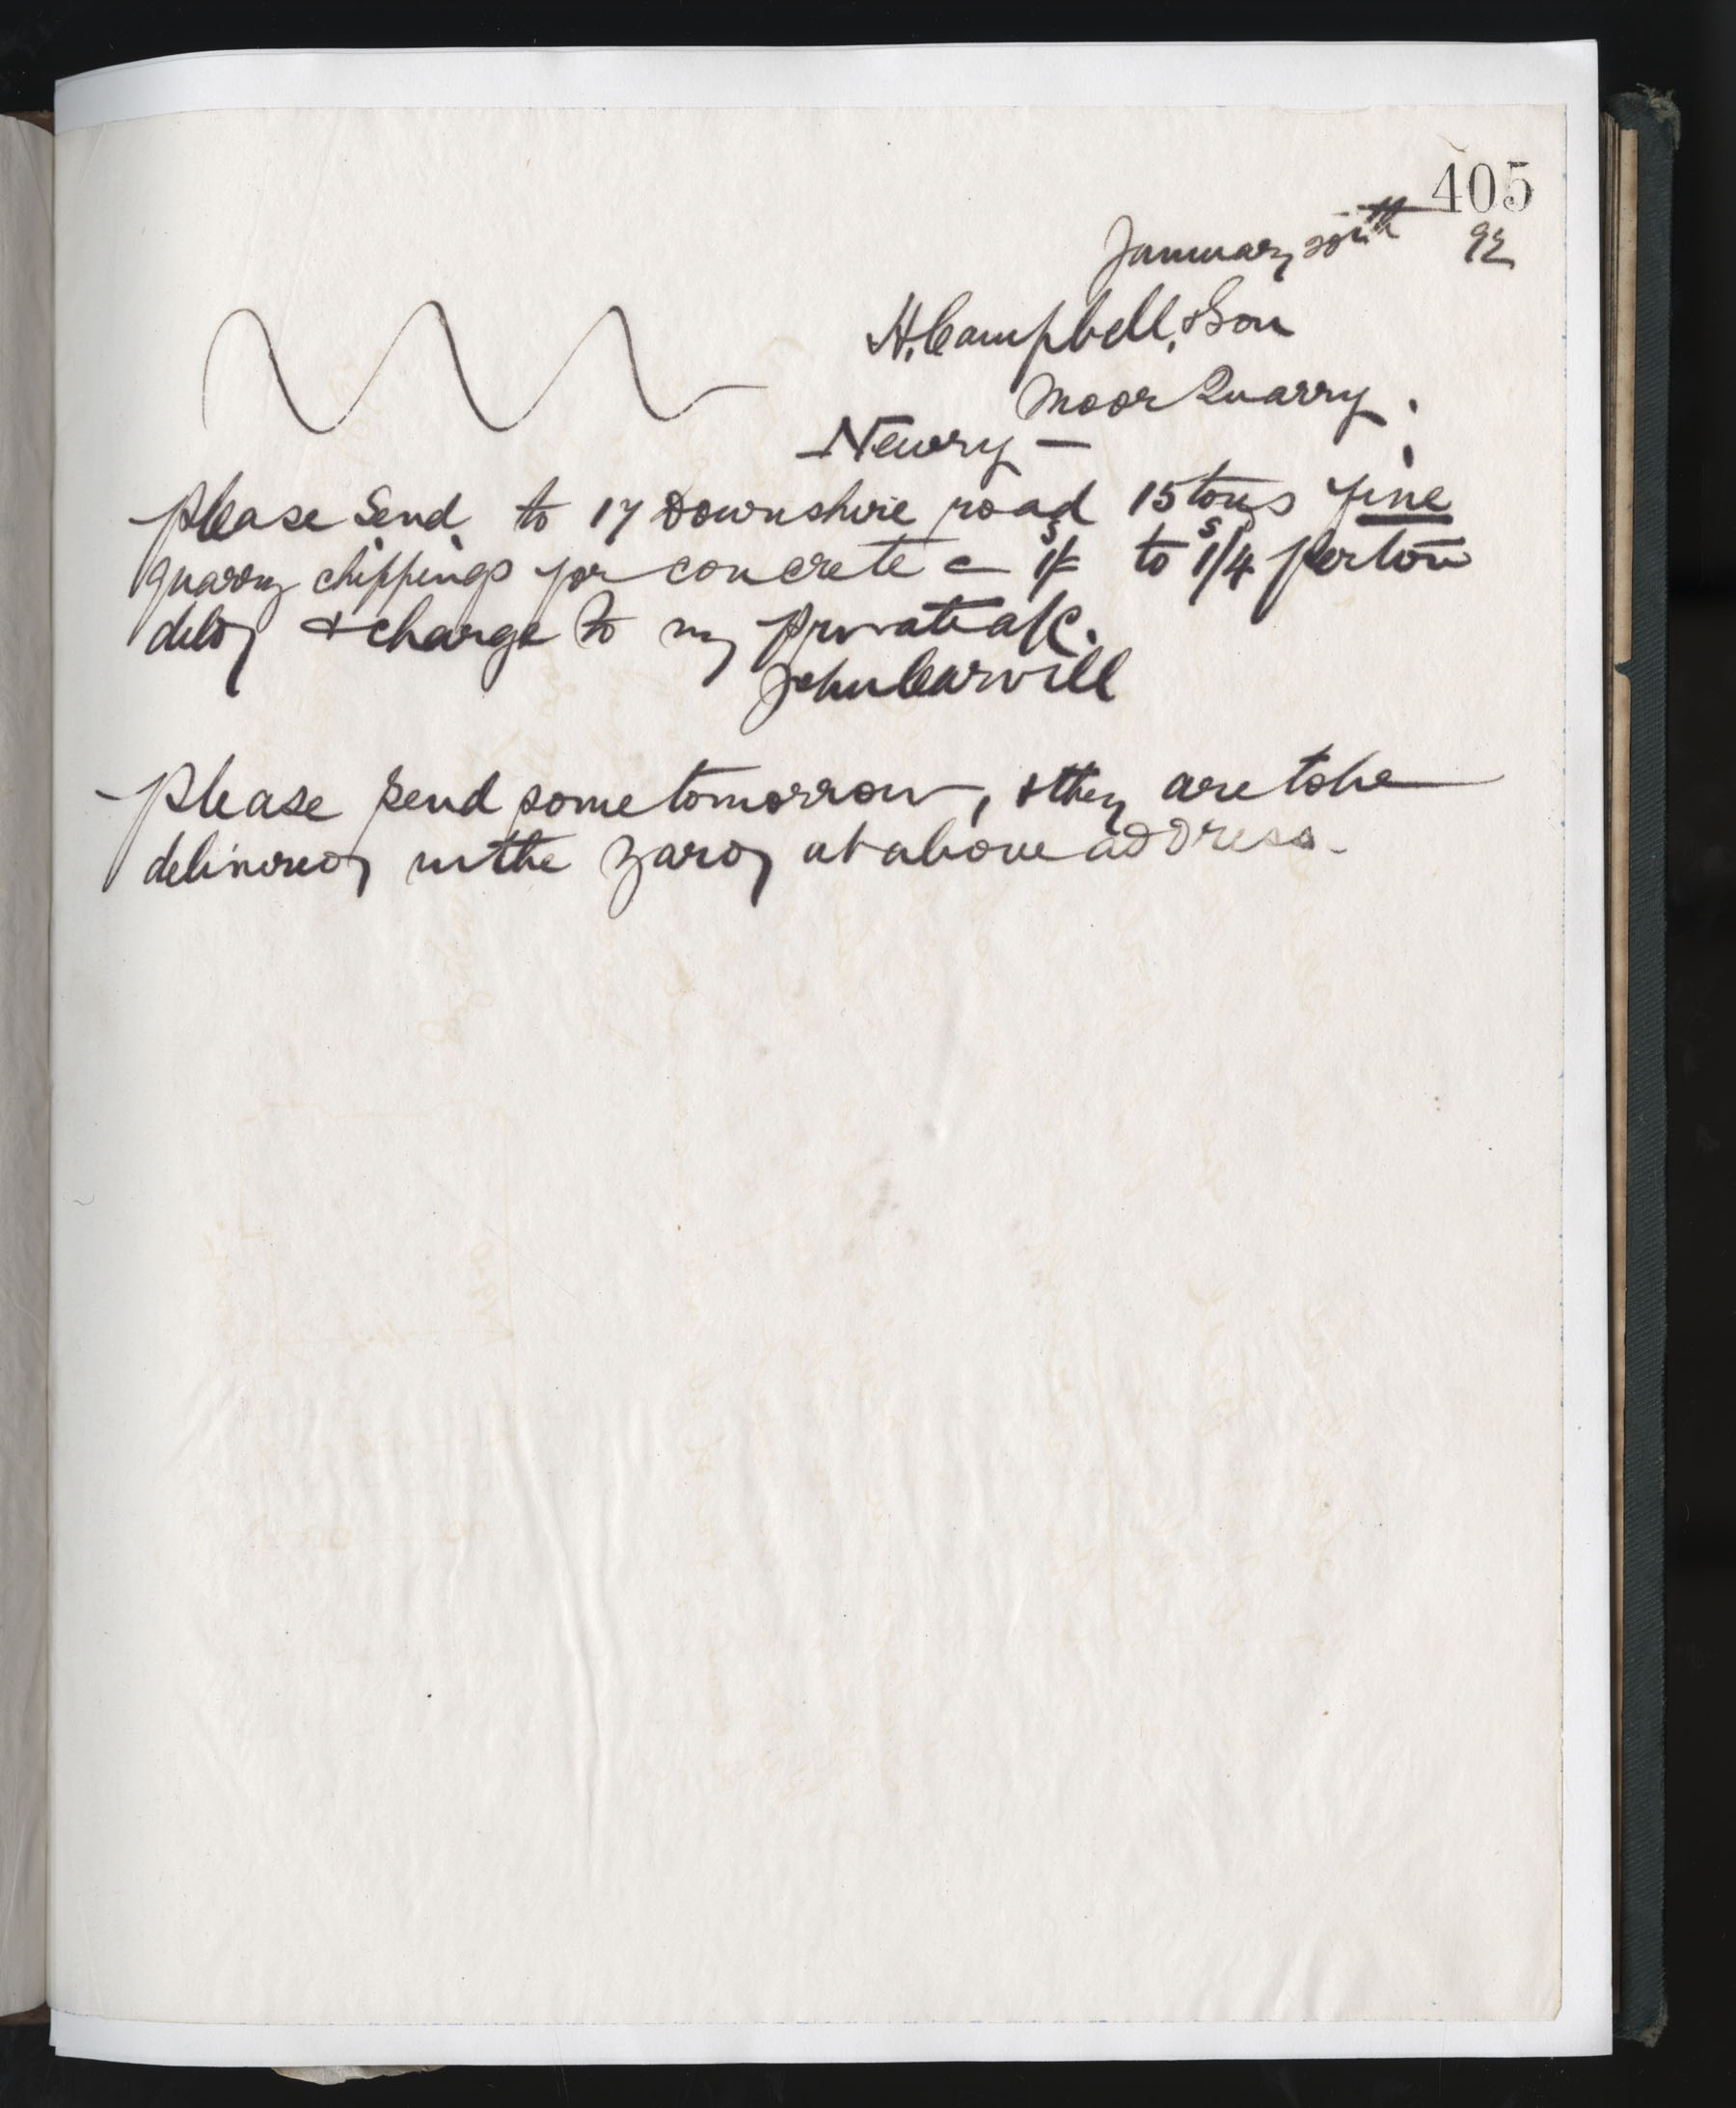 405
January 30th 92
H. Campbell, & Son
Moor Quarry.
Newry —
please Send to 17 Downshire road 15 tons fine
quarry chippings for concrete @ 1/- to 1/4 per ton
deld & charge to my private a/c.
John Carvill
please send some tomorrow, & they are to be
delivered in the yard at above address.